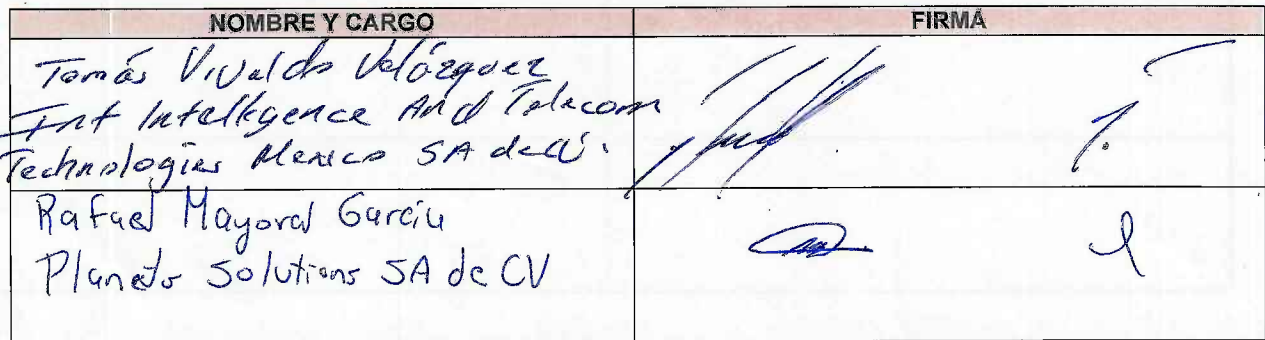 NOMBRE Y CARGO
FIRMA
Tomás Vivaldo Velázquez
Int Intelligence And Telecom
Technologies Mexico SA de CV.
Rafael Mayoral García
Solutions SA de CV